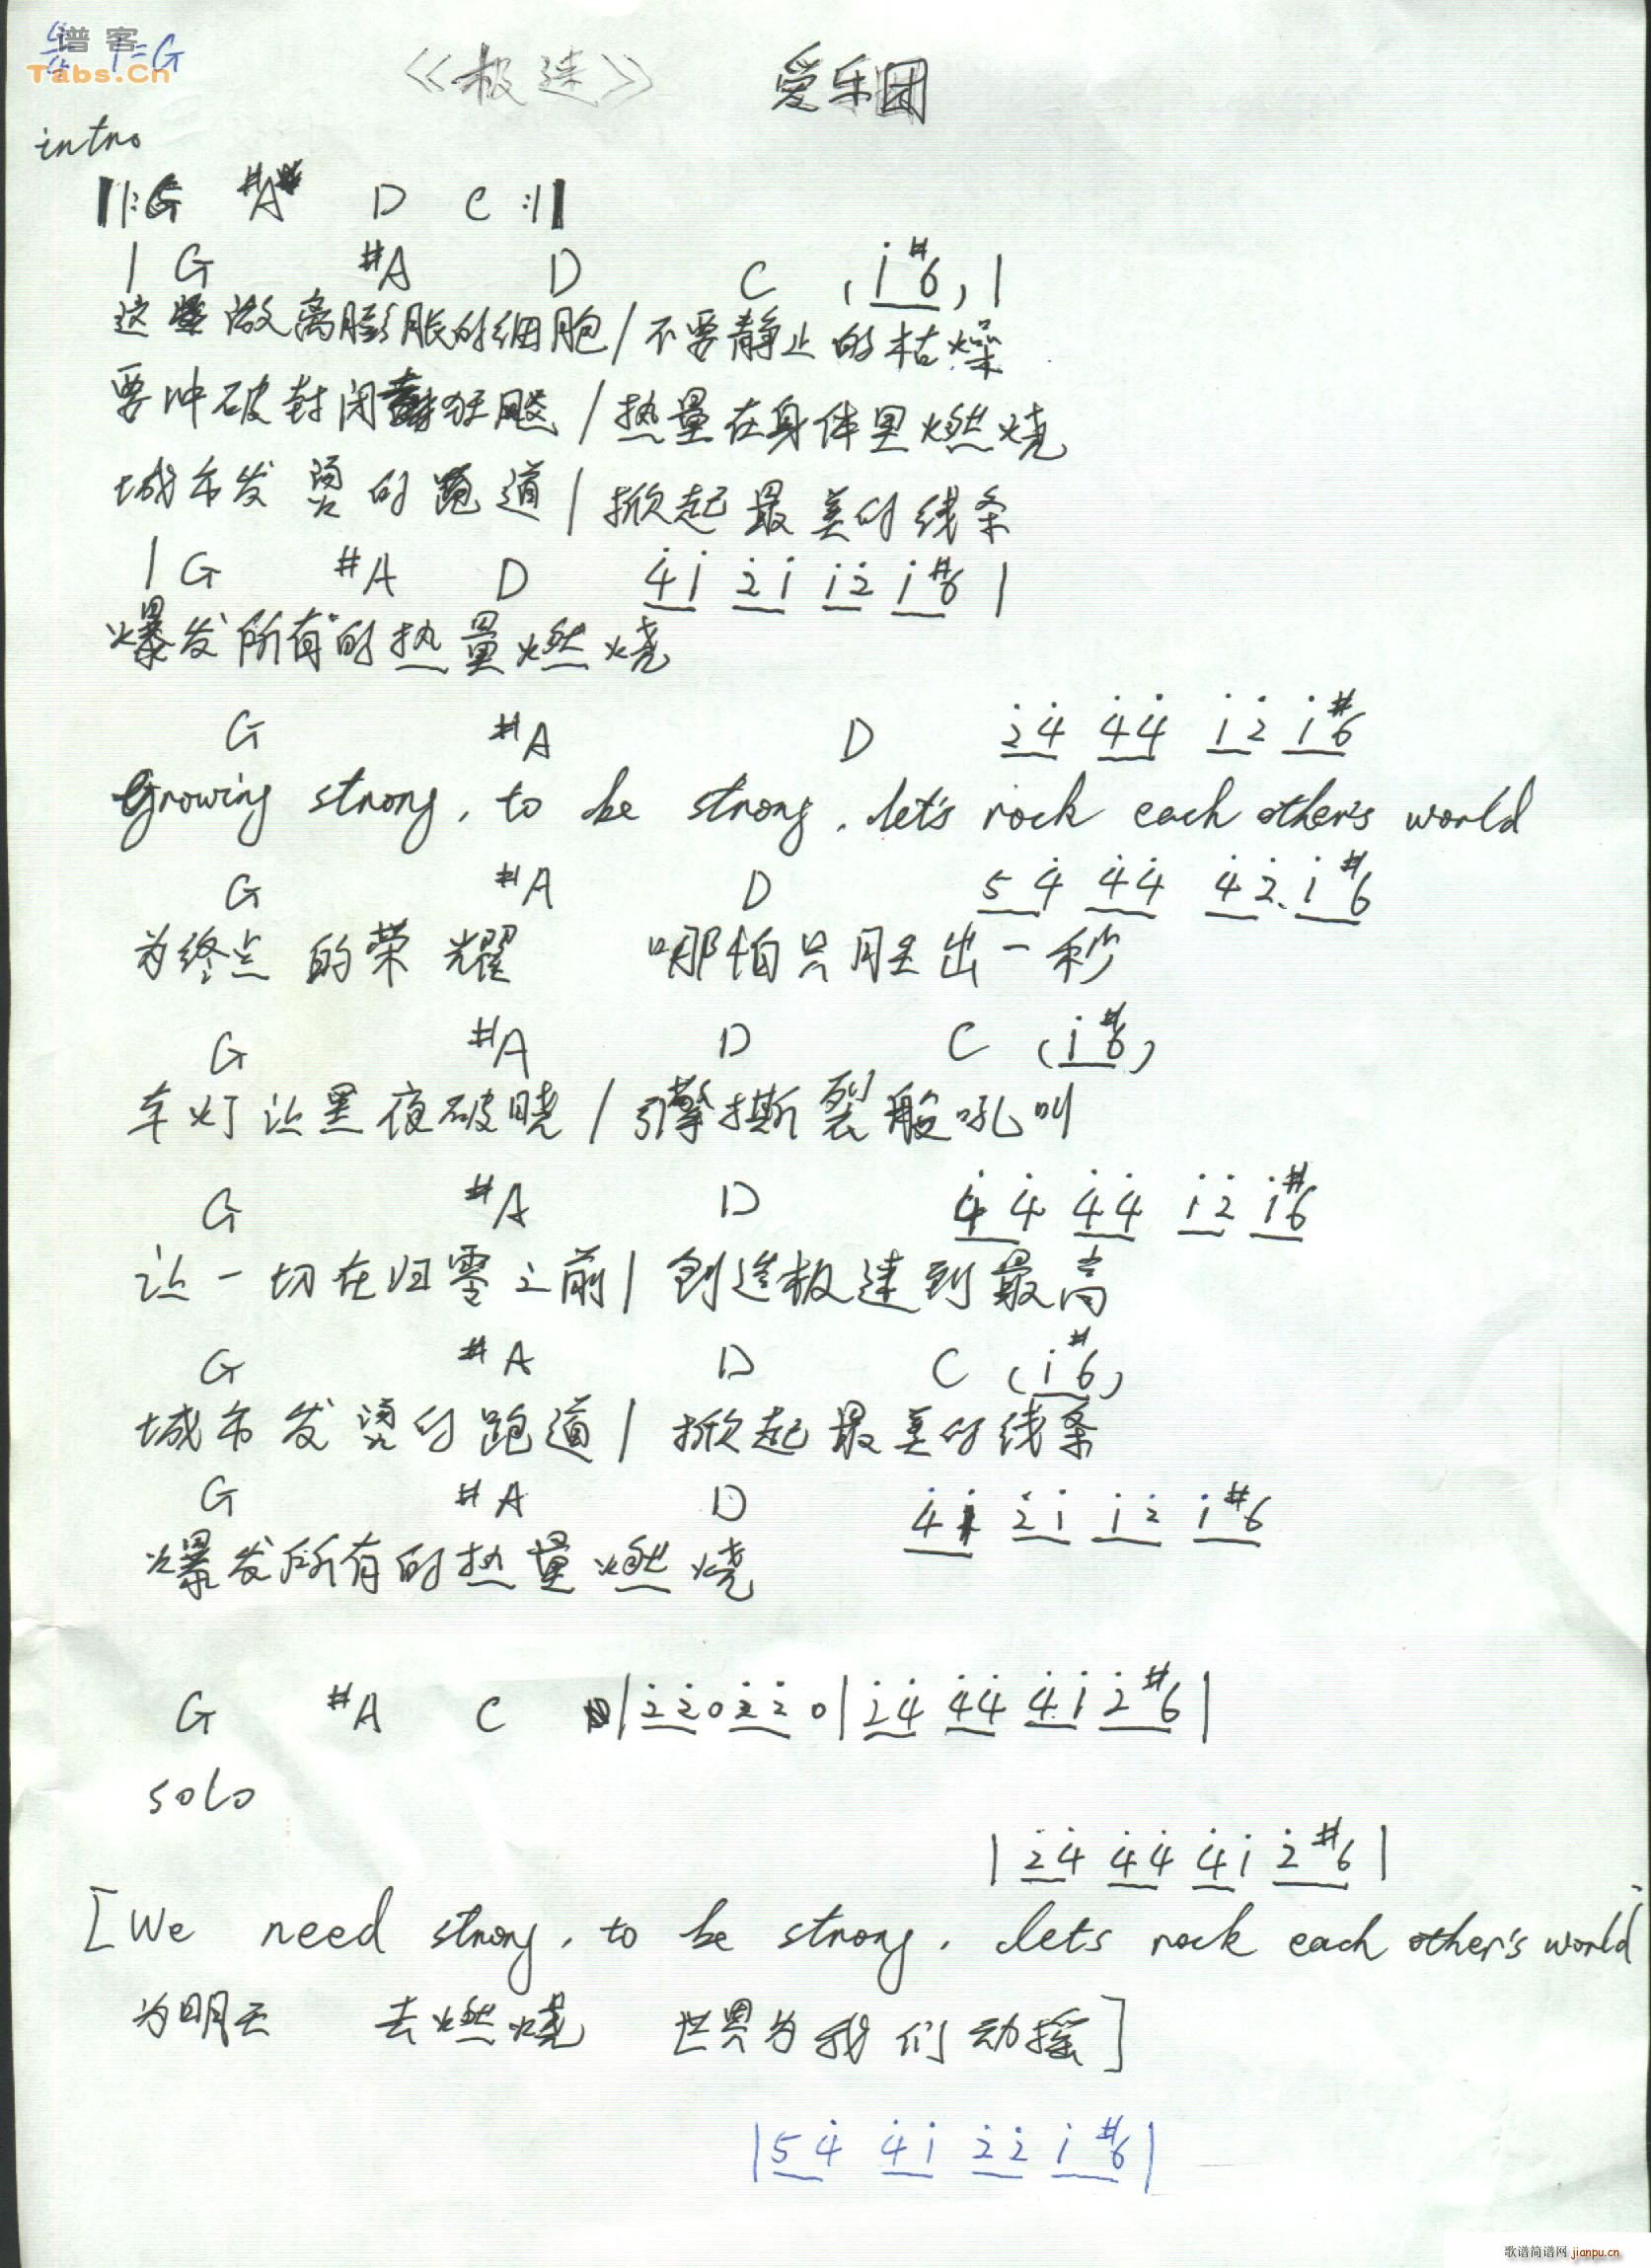 谱客
Tabs.Cn
4/4 1=G
《极速》 爱乐团
intro
‖:G #A D C :‖
| G #A D C (i #6) |
这 做离膨胀的细胞/不要静止的枯燥
要冲破封闭 狂飚/热量在身体里燃烧
城市发烫的跑道/掀起最美的线条
| G #A D 4̇i 2̇i i2̇ i#6 |
爆发所有的热量燃烧
G #A D 2̇4̇ 4̇4̇ i2̇ i#6
Growing strong, to be strong, let's rock each other's world
G #A D 54̇ 4̇4̇ 4̇2̇. i#6
为终点的荣耀 哪怕只胜出一秒
G #A D C (i#6)
车灯让黑夜破晓/引擎撕裂般吼叫
G #A D 4̇4̇ 4̇4̇ i2̇ i#6
让一切在归零之前/创造极速到最高
G #A D C (i#6)
城市发烫的跑道/掀起最美的线条
G #A D 4̇i 2̇i i2̇ i#6
爆发所有的热量燃烧
G #A C |2̇2̇0 2̇2̇0|2̇4̇ 4̇4̇ 4̇i 2̇#6|
solo
|2̇4̇ 4̇4̇ 4̇i 2̇#6|
[We need strong, to be strong, lets rock each other's world
为明天 去燃烧 世界为我们动摇]
|54̇ 4̇i 2̇2̇ i#6|
歌谱简谱网 jianpu.cn